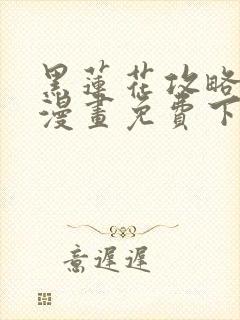 黑蓮花攻略
漫畫免費下
意遲遲